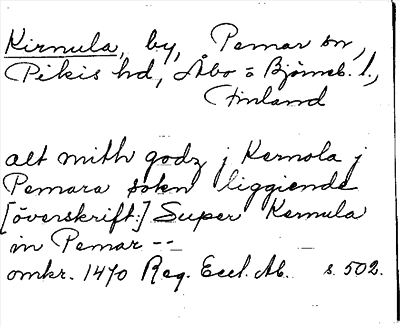 Kirmula, by, Pemar sn,
Pikis hd, Åbo = Björneb. l.,
Finland
alt mith godz j Kernola j
Pemara sokn liggiende
[överskrift:] Super Kernula
in Pemar --
omkr. 1470 Reg. Eccl. Ab. s. 502.